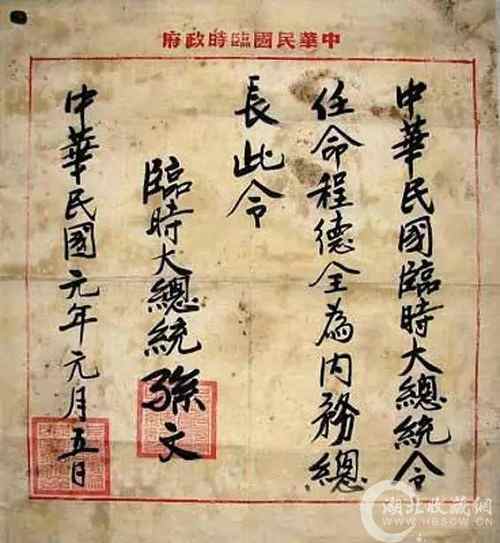 中華民國臨時政府
中華民國臨時大總統令
任命程德全為內務總
長此令
臨時大總統孫文
中華民國元年元月五日
湖北收藏網
WWW.HBSCW.CN